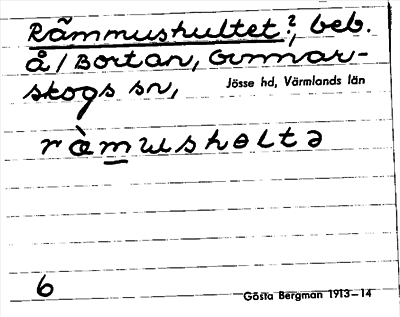 Råmmushultet?, beb.
å/Bortan, Gunnar-
skogs sn,
Jösse hd, Värmlands län
ràmusholtə
6
Gösta Bergman 1913–14